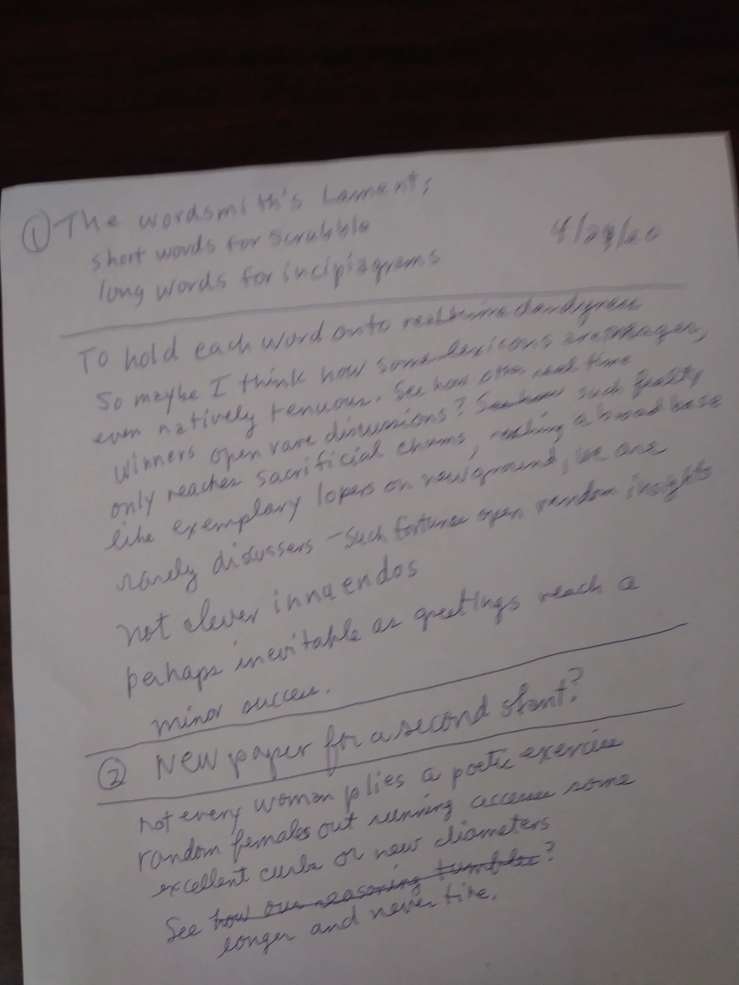 ① The wordsmith's Lament:
short words for Scrabble
long words for incipiagrams
4/29/20
To hold each word onto
So maybe I think how some lexicons are
even natively tenuous. See how other real time
winners open rare discussions? such
only reaches sacrificial chums, reaching a broad base
like exemplary lopers on new ground, we are
rarely discussers - such fortunes open random insights
not clever innuendos
perhaps inevitable as greetings reach a
minor success.
② New paper for a second stant?
not every woman plies a poetic exercise
random females out running accesses some
excellent curbs or new diameters
See how our reasoning tumbles?
longer and never tire.